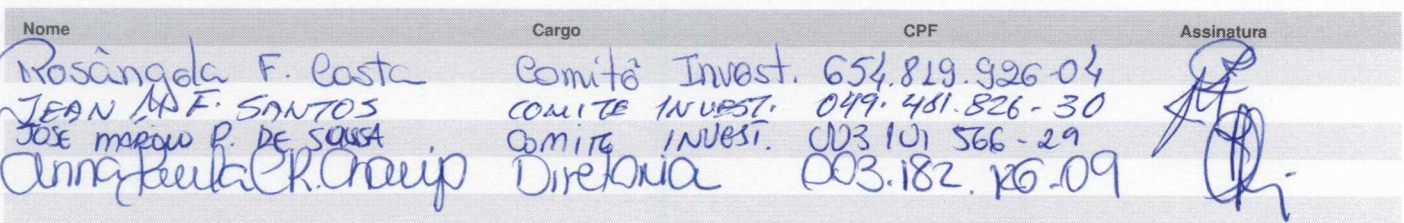 Nome Cargo CPF Assinatura
Rosângela F. Costa Comitê Invest. 654.819.926-04
JEAN F. SANTOS COMITE INVEST. 049.481.826-30
JOSE MARQUO P. DE SOUSA COMITE INVEST. 003 101 566-29
Anna Paula C R. Araujo Diretoria 003.182.